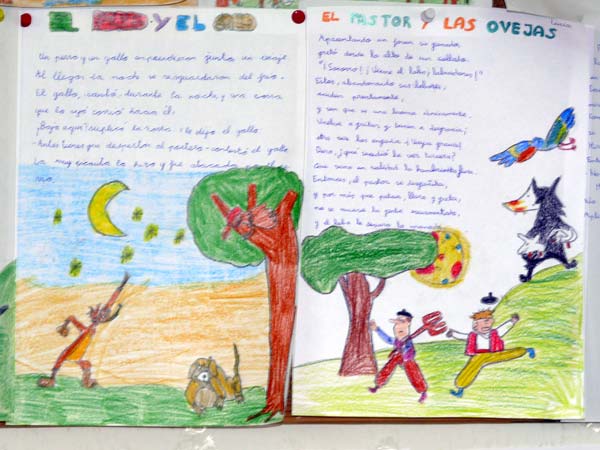 EL PERRO Y EL GALLO
Un perro y un gallo emprendieron juntos un viaje.
Al llegar la noche se resguardaron del frío.
El gallo, cantó, durante la noche, y una zorra
que lo oyó corrió hacia él:
¡Baja aquí! suplicó la zorra
le dijo el gallo
- Antes tienes que despertar al portero - contestó el gallo
La muy
EL PASTOR Y LAS OVEJAS
Lucía
Apacentando un joven su ganado,
gritó desde la alto de un collado:
"¡Socorro! ¡viene el lobo, labradores!"
Estos, abandonando sus labores,
acuden prontamente,
y ven que es una broma únicamente.
Vuelve a gritar, y temen la desgracia;
otra vez los engaña ¡Vaya gracia!
Pero, ¿qué sucedió la vez tercera?
Que vino en realidad la hambrienta fiera.
Entonces, el pastor se desgañita,
y por más que patea, llora y grita,
no se mueve la gente escarmentada,
y el lobo le devora la manada.